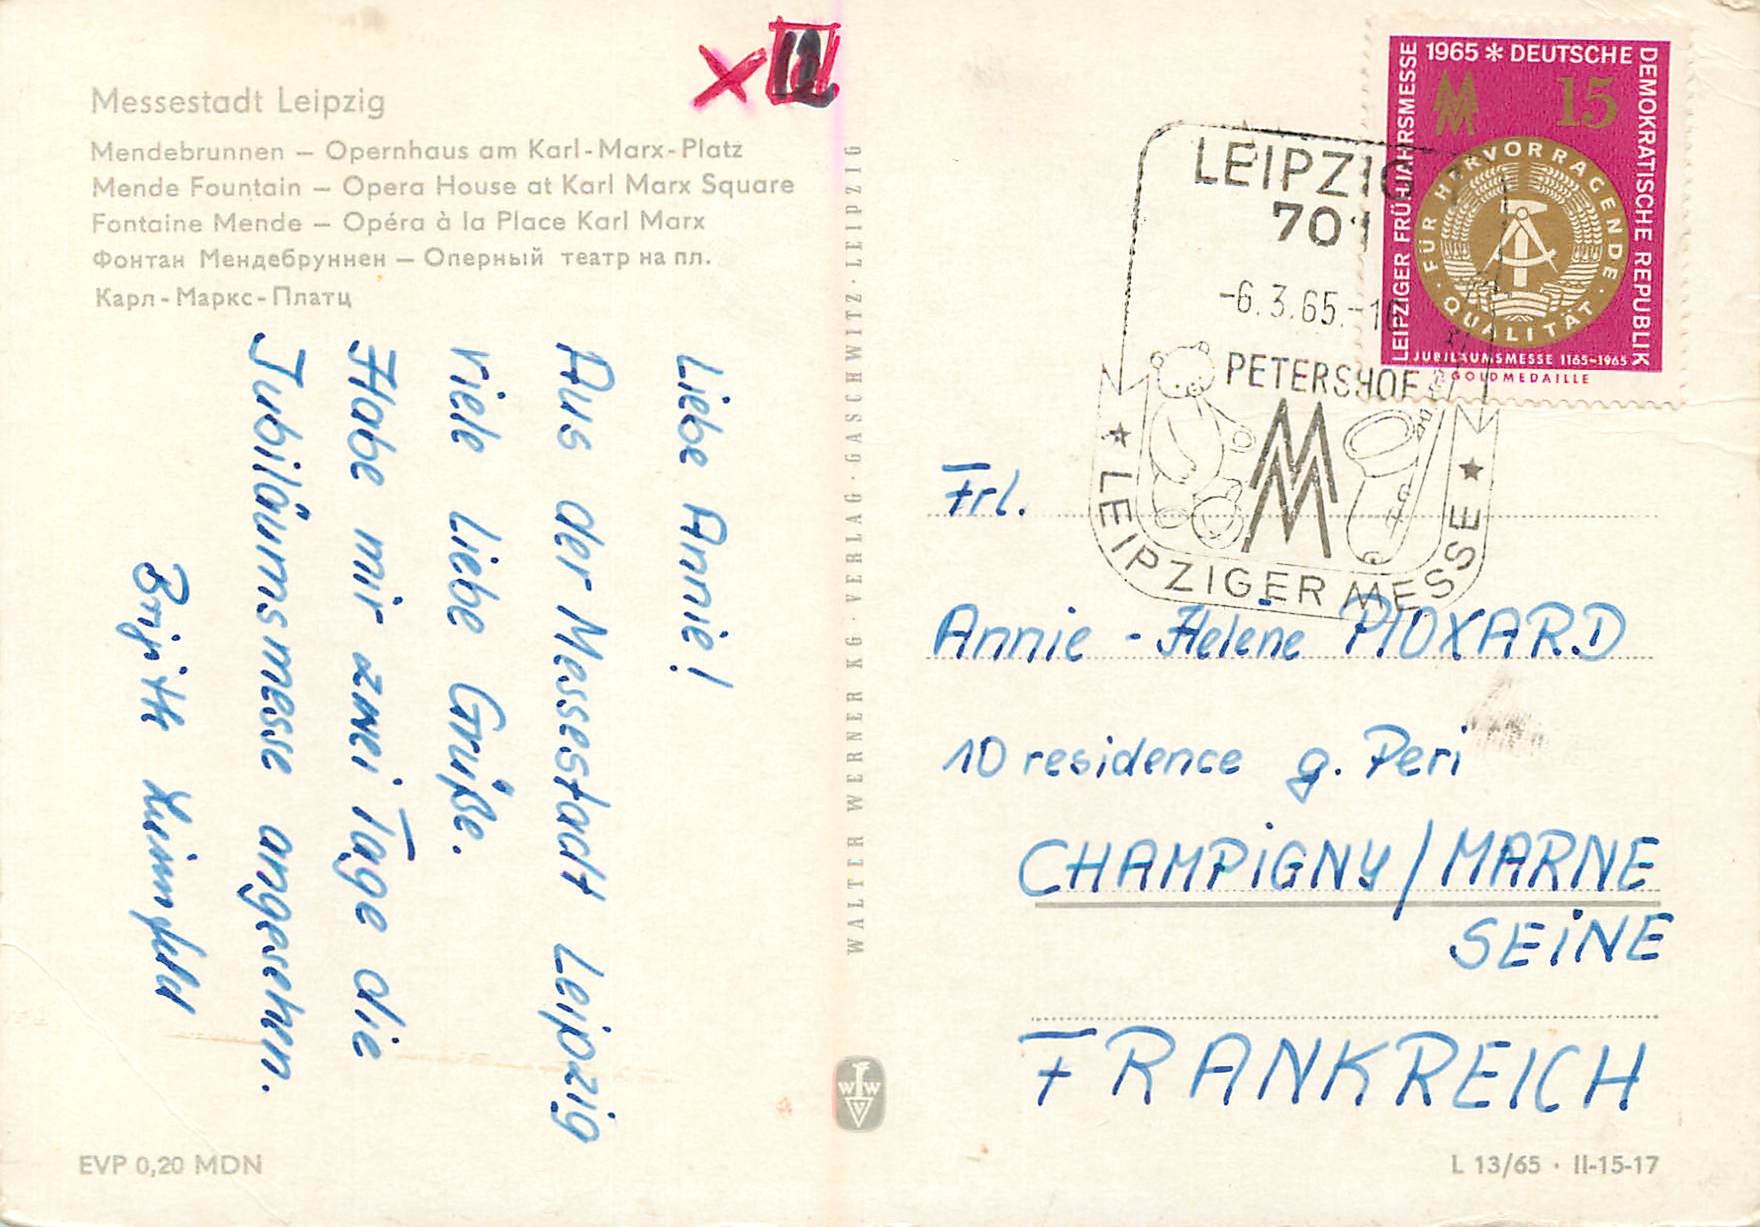 Messestadt Leipzig
Mendebrunnen – Opernhaus am Karl-Marx-Platz
Mende Fountain – Opera House at Karl Marx Square
Fontaine Mende – Opéra à la Place Karl Marx
Фонтан Мендебруннен – Оперный театр на пл.
Карл-Маркс-Платц
Liebe Annie!
Aus der Messestadt Leipzig
viele liebe Grüße.
Habe mir zwei Tage die
Jubiläumsmesse angesehen.
Brigitte
EVP 0,20 MDN
WALTER WERNER KG · VERLAG · GASCHWITZ · LEIPZIG
WW
V
X 12
1965 * DEUTSCHE
DEMOKRATISCHE REPUBLIK
LEIPZIGER FRÜHJAHRSMESSE
MM
15
FÜR HERVORRAGENDE · QUALITÄT ·
JUBILÄUMSMESSE 1165-1965
GOLDMEDAILLE
LEIPZIG
701
-6.3.65.-16
PETERSHOF
MM
★ LEIPZIGER MESSE ★
Frl.
Annie - Helene PIOXARD
10 residence g. Peri
CHAMPIGNY/MARNE
SEINE
FRANKREICH
L 13/65 · II-15-17